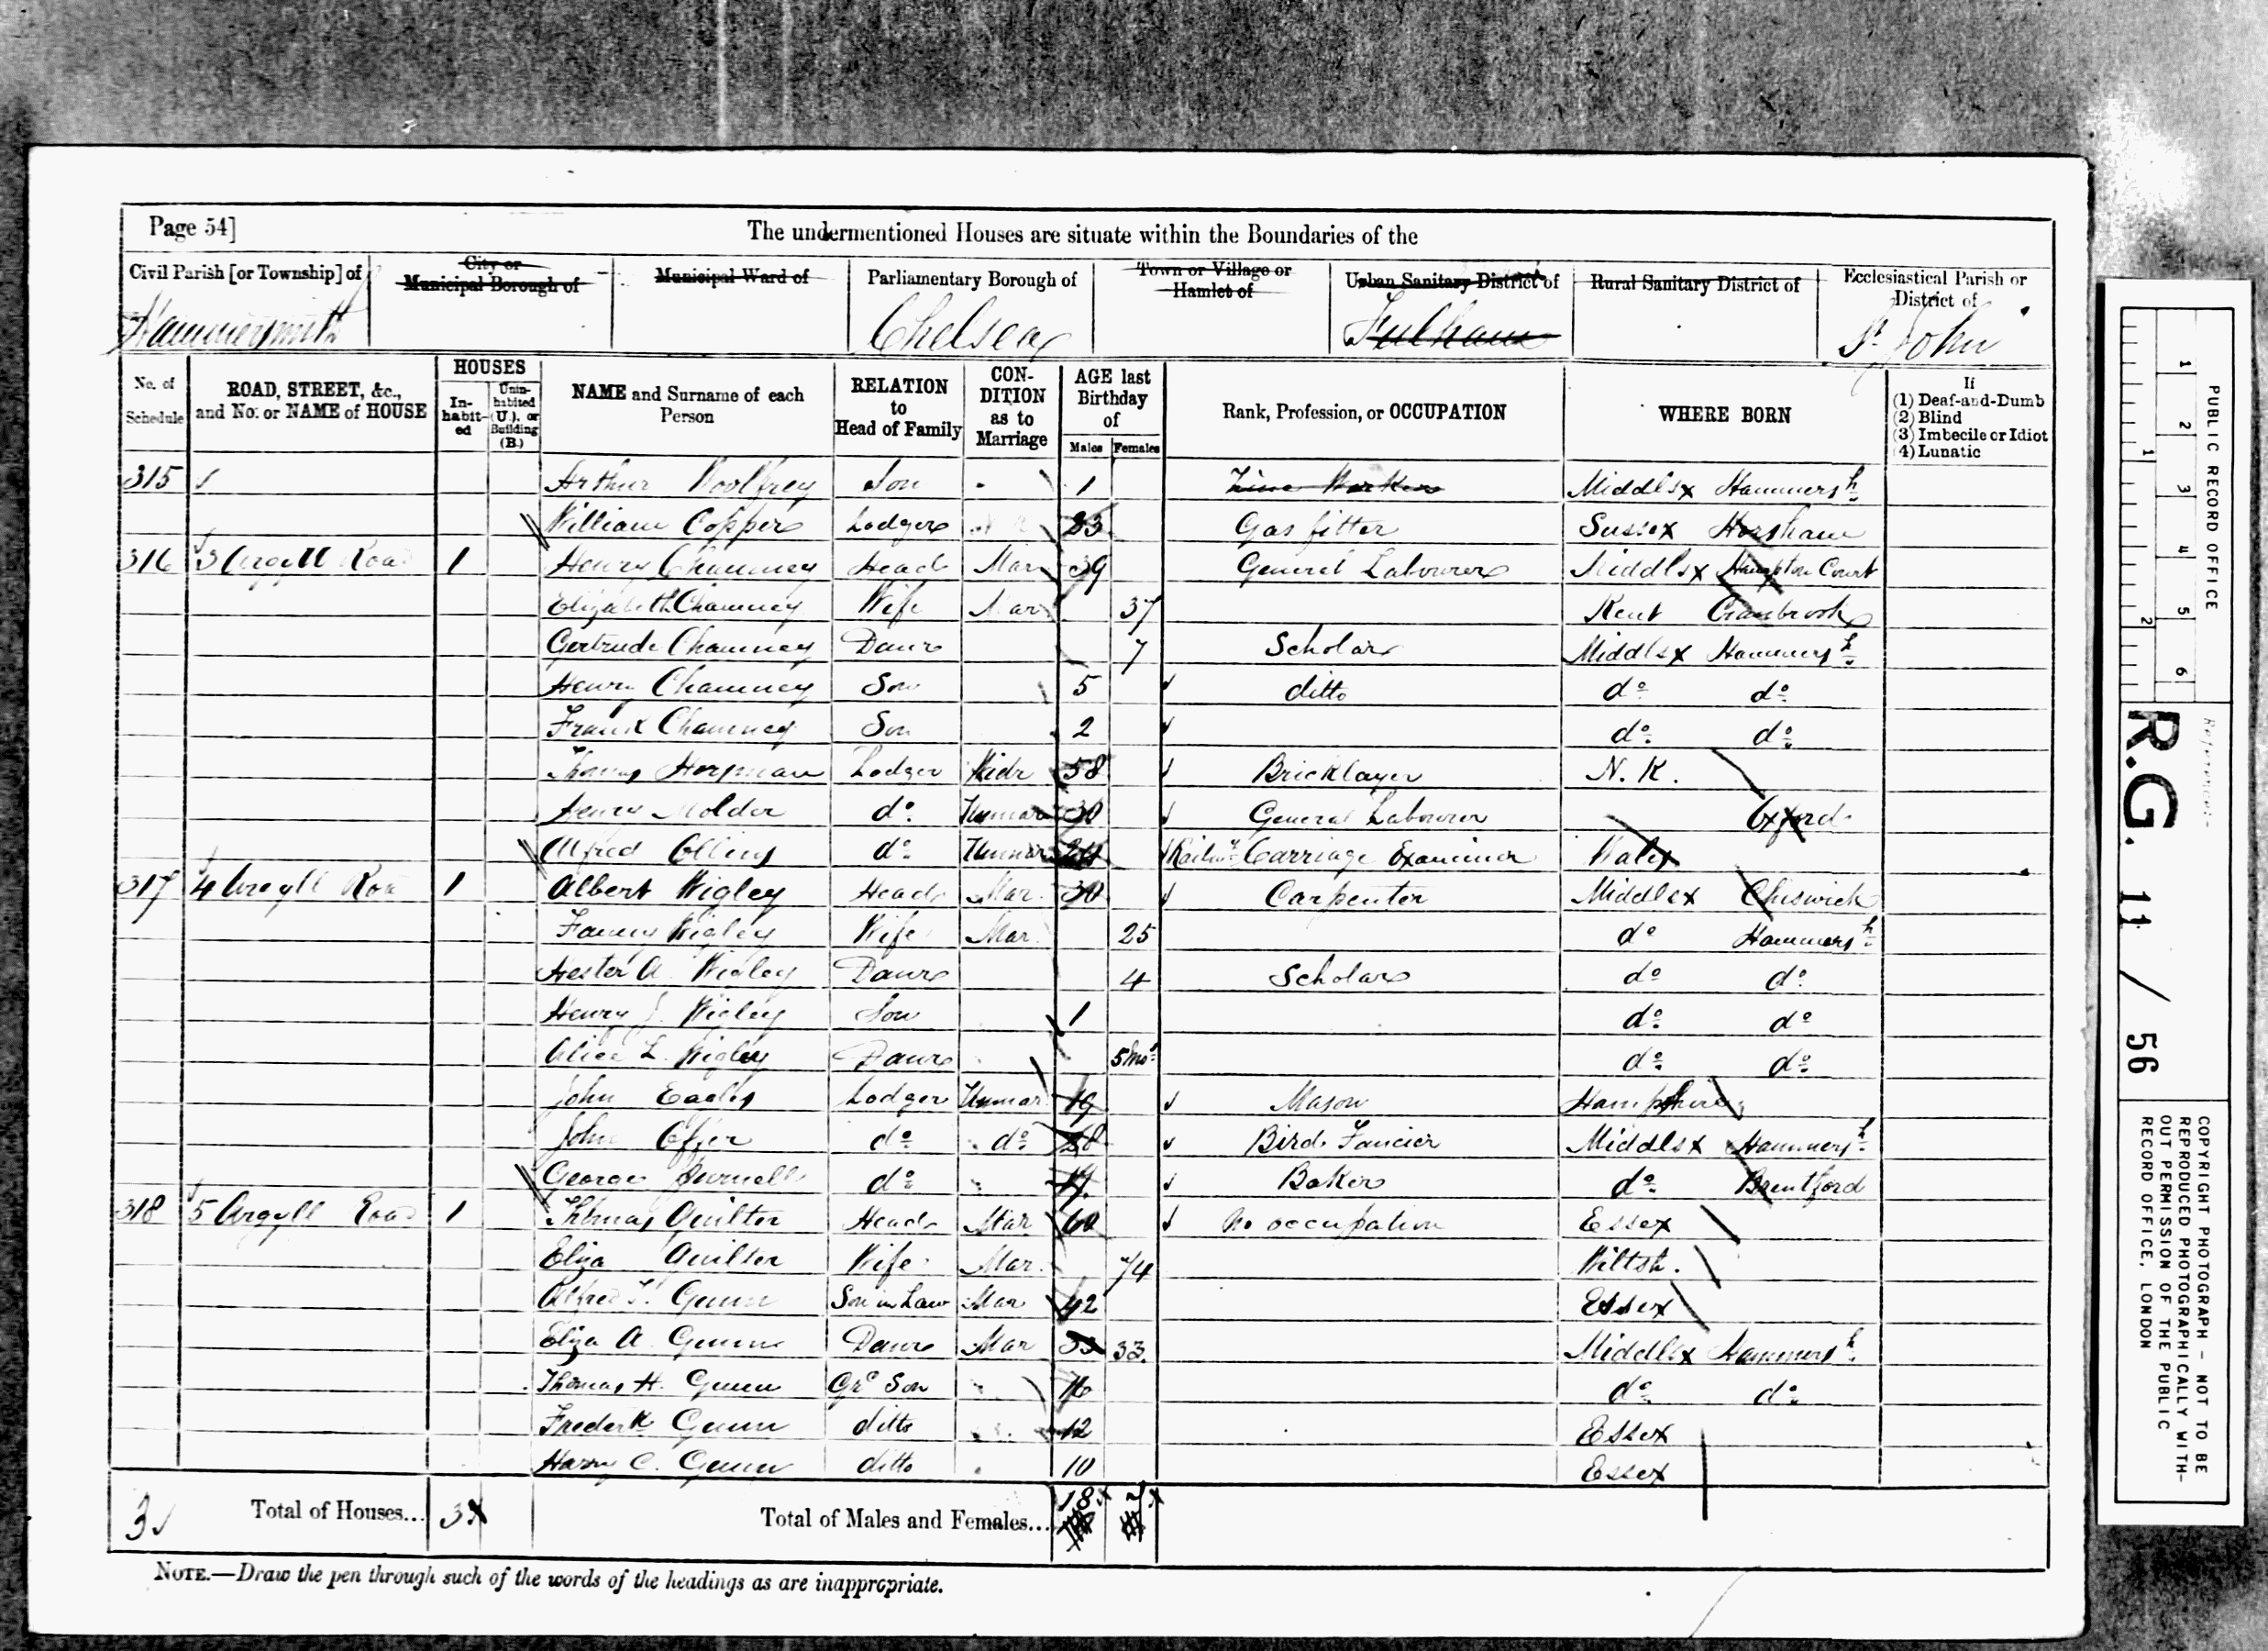 Page 54]
The undermentioned Houses are situate within the Boundaries of the
Civil Parish [or Township] of
City or Municipal Borough of
Municipal Ward of
Parliamentary Borough of
Town or Village or Hamlet of
Urban Sanitary District of
Rural Sanitary District of
Ecclesiastical Parish or District of
Hammersmith Chelsea Fulham St John
No. of Schedule
ROAD, STREET, &c., and No. or NAME of HOUSE
HOUSES
In-habit-ed
Unin-habited (U.), or Building (B.)
NAME and Surname of each Person
RELATION to Head of Family
CON-DITION as to Marriage
AGE last Birthday of
Males Females
Rank, Profession, or OCCUPATION
WHERE BORN
If
(1) Deaf-and-Dumb
(2) Blind
(3) Imbecile or Idiot
(4) Lunatic
315 Arthur Woolfrey Son 1 Middlsx Hammersh
William Copper Lodger 23 Gas fitter Sussex Horsham
316 3 Argyll Road 1 Henry Chamney Head Mar 39 General Labourer Middlsx Hampton Court
Elizabeth Chamney Wife Mar 37 Kent Cranbrook
Gertrude Chamney Daur 7 Scholar Middlsx Hammersh
Henry Chamney Son 5 ditto do do
Frank Chamney Son 2 do do
Thomas Lodger Widr 58 Bricklayer N. K.
Henry Molder do Unmar 30 General Labourer Oxford
Alfred Collins do Unmar 24 Railwy Carriage Examiner Wales
317 4 Argyll Roa 1 Albert Wigley Head Mar 30 Carpenter Middlsex Chiswick
Fanny Wigley Wife Mar 25 do Hammersh
Hester A. Wigley Daur 4 Scholar do do
Henry J. Wigley Son 1 do do
Alice L. Wigley Daur 5 Mos do do
John Eagles Lodger Unmar 19 Mason Hampshire
John Offer do do 28 Bird Fancier Middlsx Hammersh
George Burnell do 19 Baker do Brentford
318 5 Argyll Road 1 Thomas Quilter Head Mar 60 No occupation Essex
Eliza Quilter Wife Mar 74 Wiltsh.
Alfred T. Gunn Son in Law Mar 42 Essex
Eliza A. Gunn Daur Mar 33 33 Middlsx Hammersh
Thomas H. Gunn Gr Son 16 do do
Frederk Gunn ditto 12 Essex
Harry C. Gunn ditto 10 Essex
3 Total of Houses... 3 Total of Males and Females... 18 7
NOTE.—Draw the pen through such of the words of the headings as are inappropriate.
PUBLIC RECORD OFFICE
1 2 3 4 5 6
1 2
Reference:-
R.G. 11 / 56
COPYRIGHT PHOTOGRAPH - NOT TO BE
REPRODUCED PHOTOGRAPHICALLY WITH-
OUT PERMISSION OF THE PUBLIC
RECORD OFFICE, LONDON